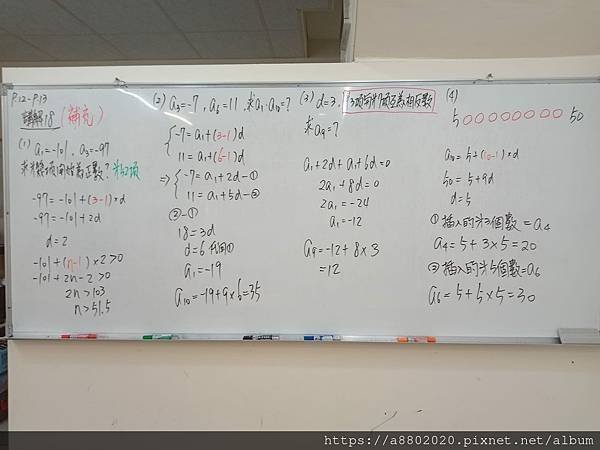 P.12-P.13
講解18 (補充)
(1) a₁=-101, a₃=-97
求第幾項開始為正數? 第52項
-97=-101+(3-1)×d
-97=-101+2d
d=2
-101+(n-1)×2>0
-101+2n-2>0
2n>103
n>51.5
(2) a₃=-7, a₆=11, 求a₁、a₁₀=?
-7=a₁+(3-1)d
11=a₁+(6-1)d
⇒ -7=a₁+2d-①
11=a₁+5d-②
②-①
18=3d
d=6 代回①
a₁=-19
a₁₀=-19+9×6=35
(3) d=3, 第3項與第7項互為相反數
求a₉=?
a₁+2d+a₁+6d=0
2a₁+8d=0
2a₁=-24
a₁=-12
a₉=-12+8×3
=12
(4)
5○○○○○○○○50
a₁₀=5+(10-1)×d
50=5+9d
d=5
①插入的第3個數=a₄
a₄=5+3×5=20
②插入的第5個數=a₆
a₆=5+5×5=30
https://a8802020.pixnet.net/album